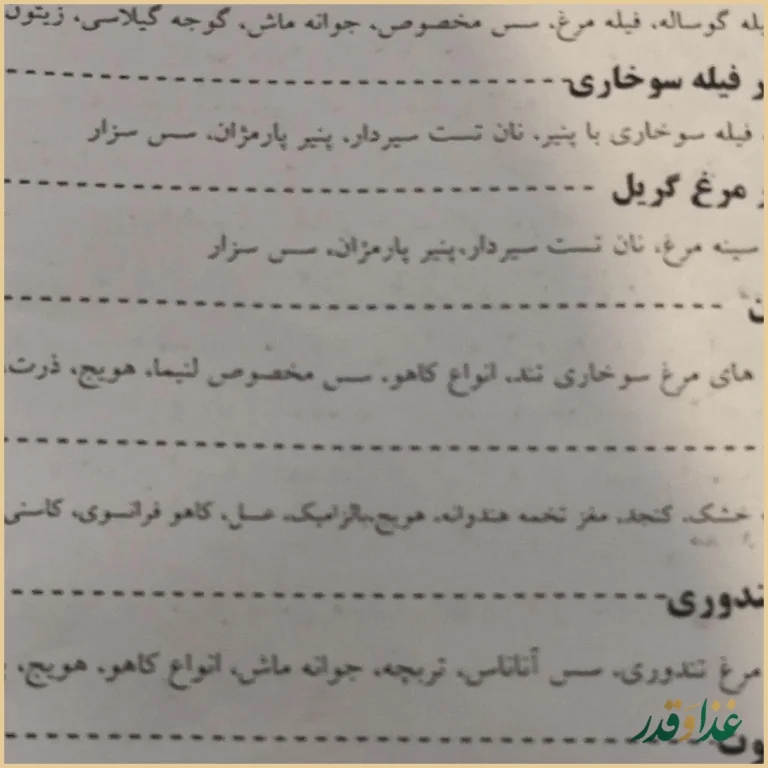 گوساله، فیله مرغ، سس مخصوص، جوانه ماش، گوجه گیلاسی، زیتون
فیله سوخاری
فیله سوخاری با پنیر، نان تست سیردار، پنیر پارمژان، سس سزار
مرغ گریل
سینه مرغ، نان تست سیردار،پنیر پارمژان، سس سزار
های مرغ سوخاری تند، انواع کاهو، سس مخصوص لنیما، هویج، ذرت،
خشک، کنجد، مغز تخمه هندوانه، هویج،بالزامیک، عسل، کاهو فرانسوی، کاسنی
تندوری
مرغ تندوری، سس آناناس، تربچه، جوانه ماش، انواع کاهو، هویج،
غذا و قدر